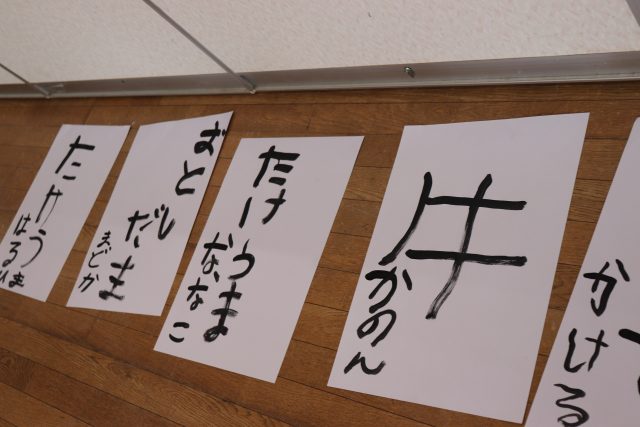 たけうま
おと
しだま
まどか
たけうま
ななこ
牛
かのん
かける